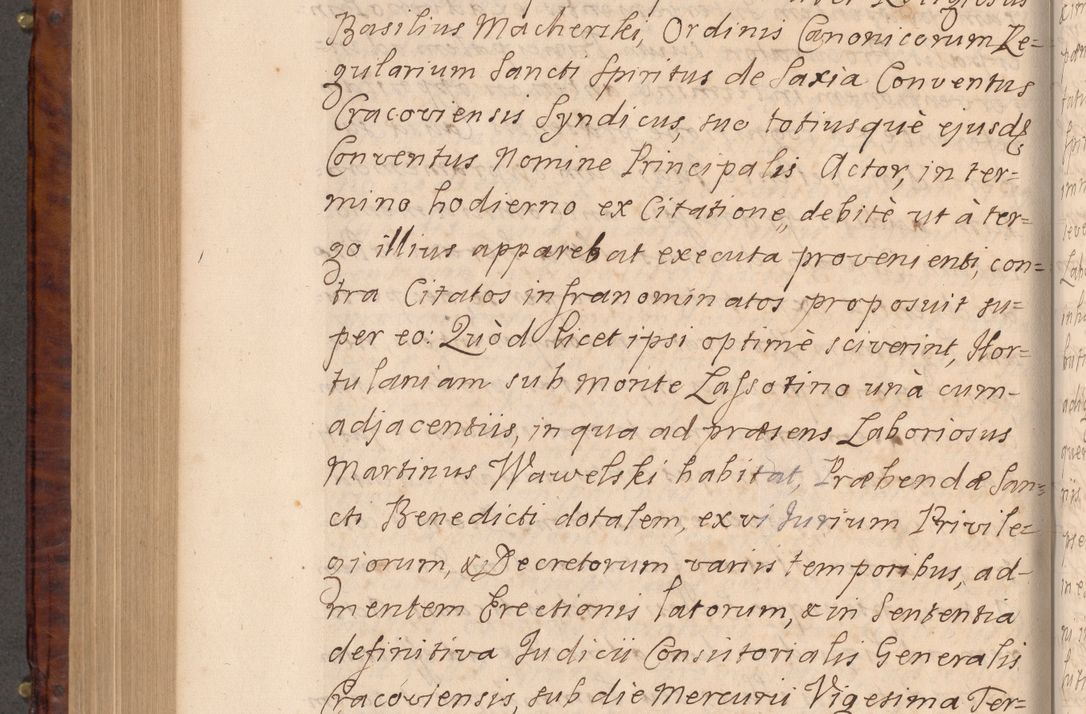 Basilius Macherski, Ordinis Canonicorum Re=
gularium Sancti Spiritus de Saxia Conventus
Cracoviensis Syndicus, suo totiusquè ejusd
Conventus Nomine Principalis Actor, in ter=
mino hodierno ex Citatione, debitè ut à ter=
go illius apparebat executa provenienti, con=
tra Citatos infranominatos proposuit su=
per eo: Quòd licet ipsi optimè sciverint, Hor=
tulaniam sub monte Lassotino unà cum
adjacentiis, in qua ad præsens Laboriosus
Martinus Wawelski habitat, Præbendæ San=
cti Benedicti dotalem, ex vi Jurium Privile=
giorum, & Decretorum variis temporibus, ad
mentem Erectionis latorum, & in Sententia
definitiva Judicii Consistorialis Generalis
Cracoviensis, sub die Mercurii Vigesima Ter=